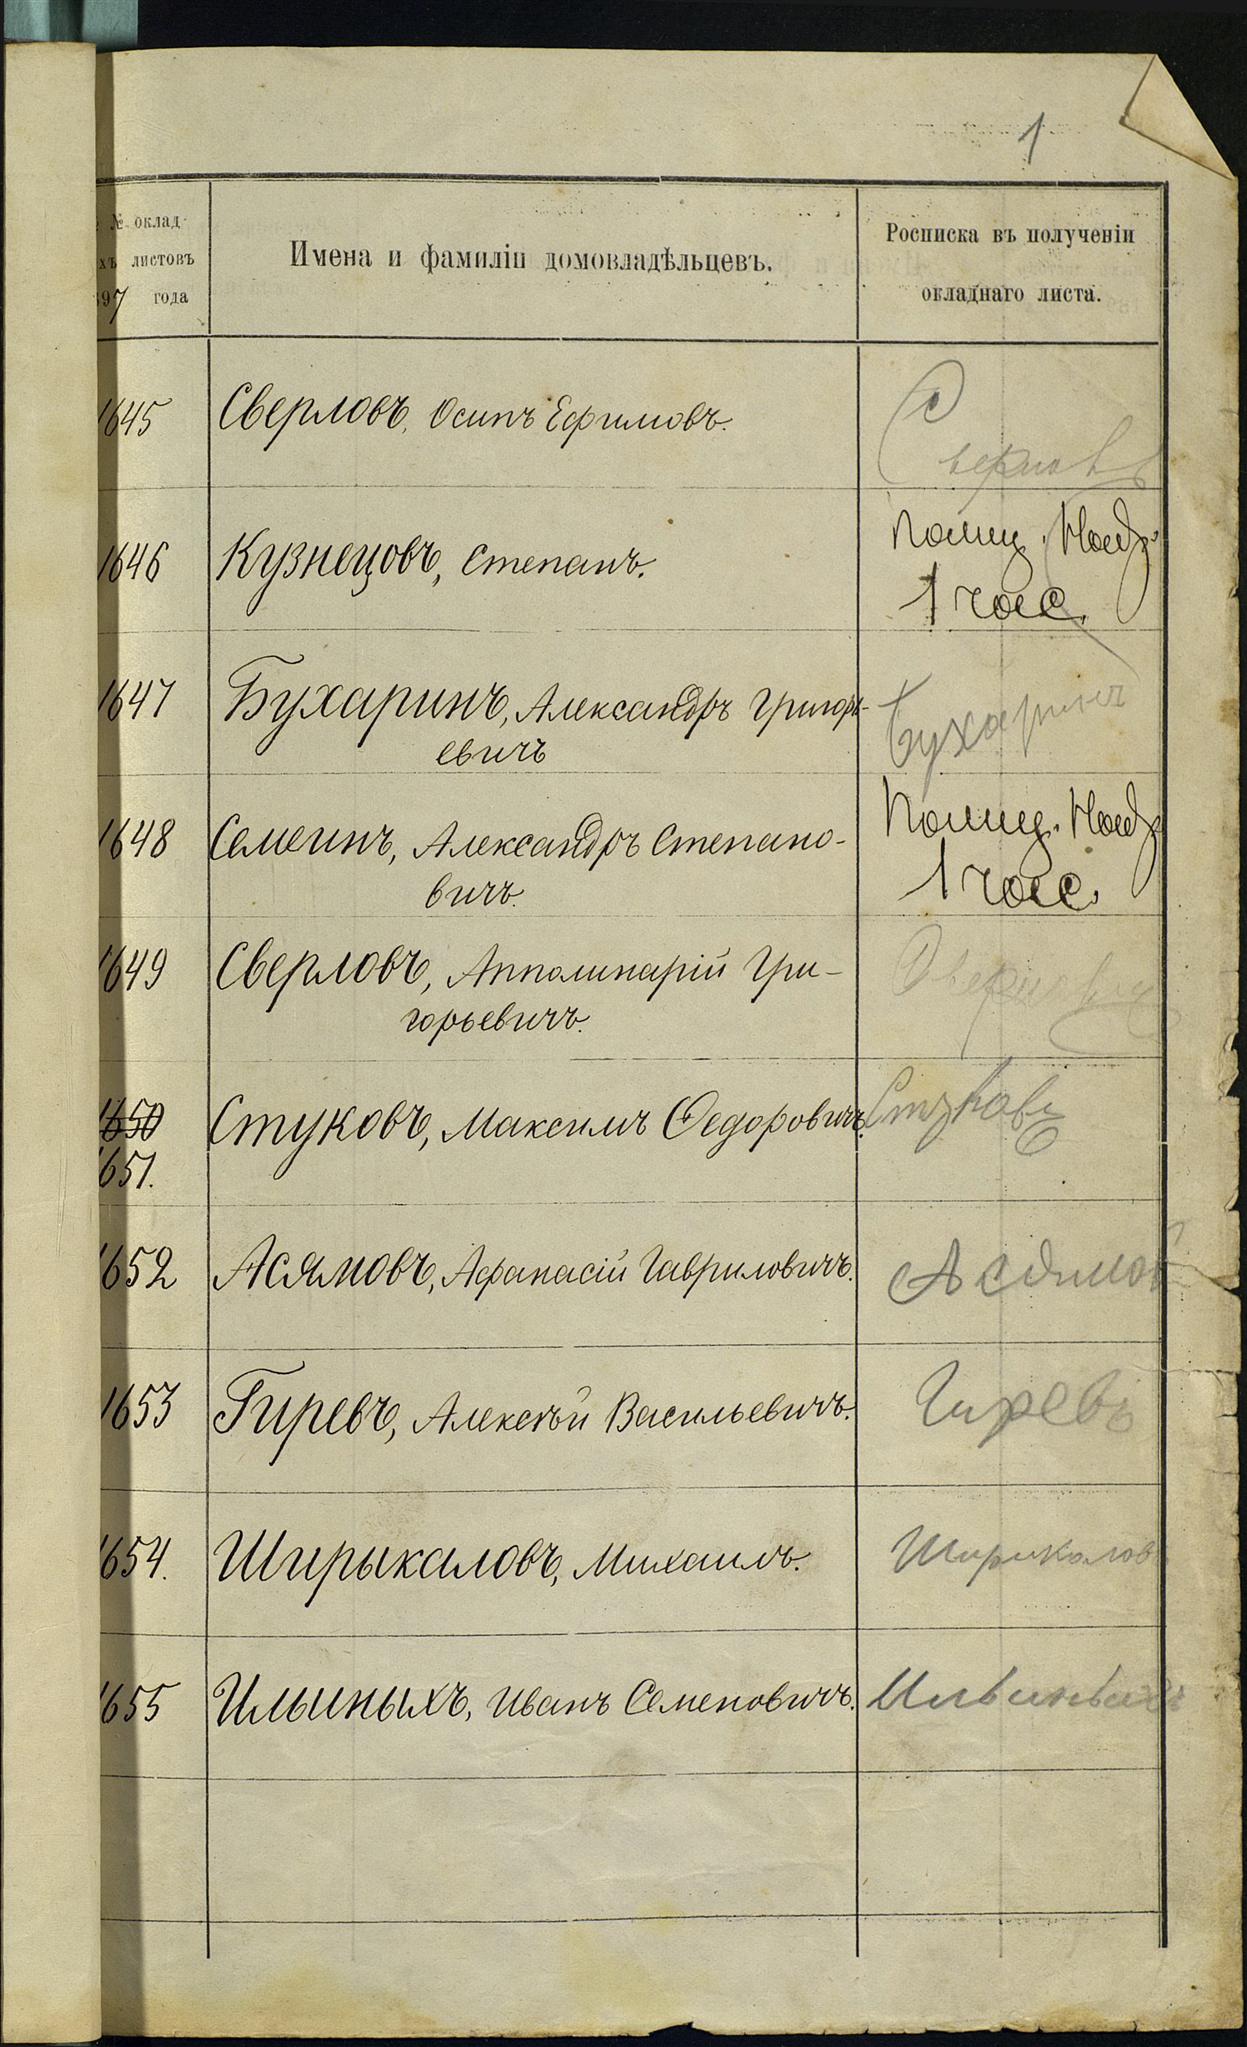 1
№ оклад-
хъ листовъ
97 года
Имена и фамиліи домовладѣльцевъ.
Росписка въ полученіи
окладнаго листа.
1645 Сверловъ, Осипъ Ефимовъ. С
верловъ
1646 Кузнецовъ, Степанъ. Полиц. Надз.
1 час.
1647 Бухаринъ, Александръ Григорь- Бухаринъ
евичъ
1648 Семеинъ, Александръ Степано- Полиц. Надз
вичъ. 1 час.
1649 Сверловъ, Апполинарій Гри-
горьевичъ.
1650 Стуковъ, Максимъ Ѳедоровичъ. Стуковъ
1651.
1652 Асямовъ, Афанасій Гавриловичъ. Асямов
1653 Гиревъ, Алексѣй Васильевичъ. Гиревъ
1654. Ширыкаловъ, Михаилъ. Шириколов
1655 Ильиныхъ, Иванъ Семеновичъ. Ильиныхъ